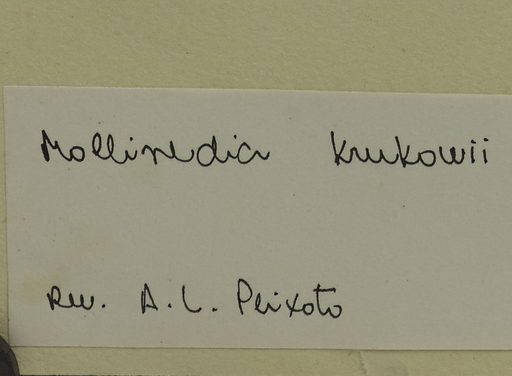 Mollinedia krukowii
rev. A. L. Peixoto